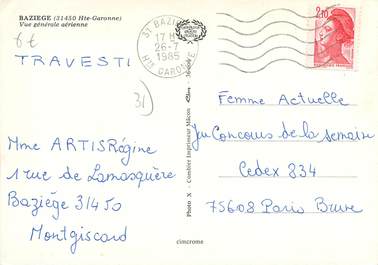 BAZIEGE (31450 Hte-Garonne)
Vue générale aérienne
6€
TRAVESTI
31 BAZIEGE
17 H
26-7
1985
Hte GARONNE
2,20
31
Mme ARTIS Régine
1 rue de Lamasquère
Baziége 31450
Montgiscard
Photo X - Combier Imprimeur Mâcon
cimcrome
Femme Actuelle
Jeu Concours de la semaine
Cedex 834
75608 Paris Brune